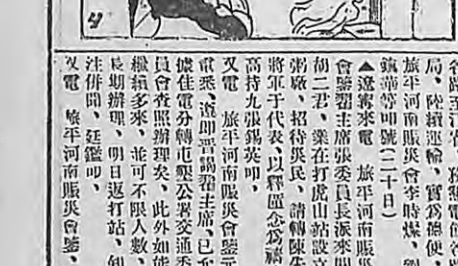 各路至江省、務懇電飭各路
局、陸續運輸、實爲德便、
旅平河南賑災會李時燦、劉
鎮華等叩號(二十日)
▲遼寗來電　旅平河南賑災
會鑒翟主席張委員長派來閻
胡二君、業在打虎山站設立
粥廠、招待災民、請轉陳朱
將軍于代表、以釋匱念爲禱
高持九張錫英叩、
又電　旅平河南賑災會鑒元
電悉、遼卽晋謁翟主席、已允
據佳電分轉屯墾公署交通委
員會查照辦理矣、此外如能
繼續多來、並可不限人數、
長期辦理、明日返打站、知
注併聞、廷鑑叩、
又電　旅平河南賑災會鑒、